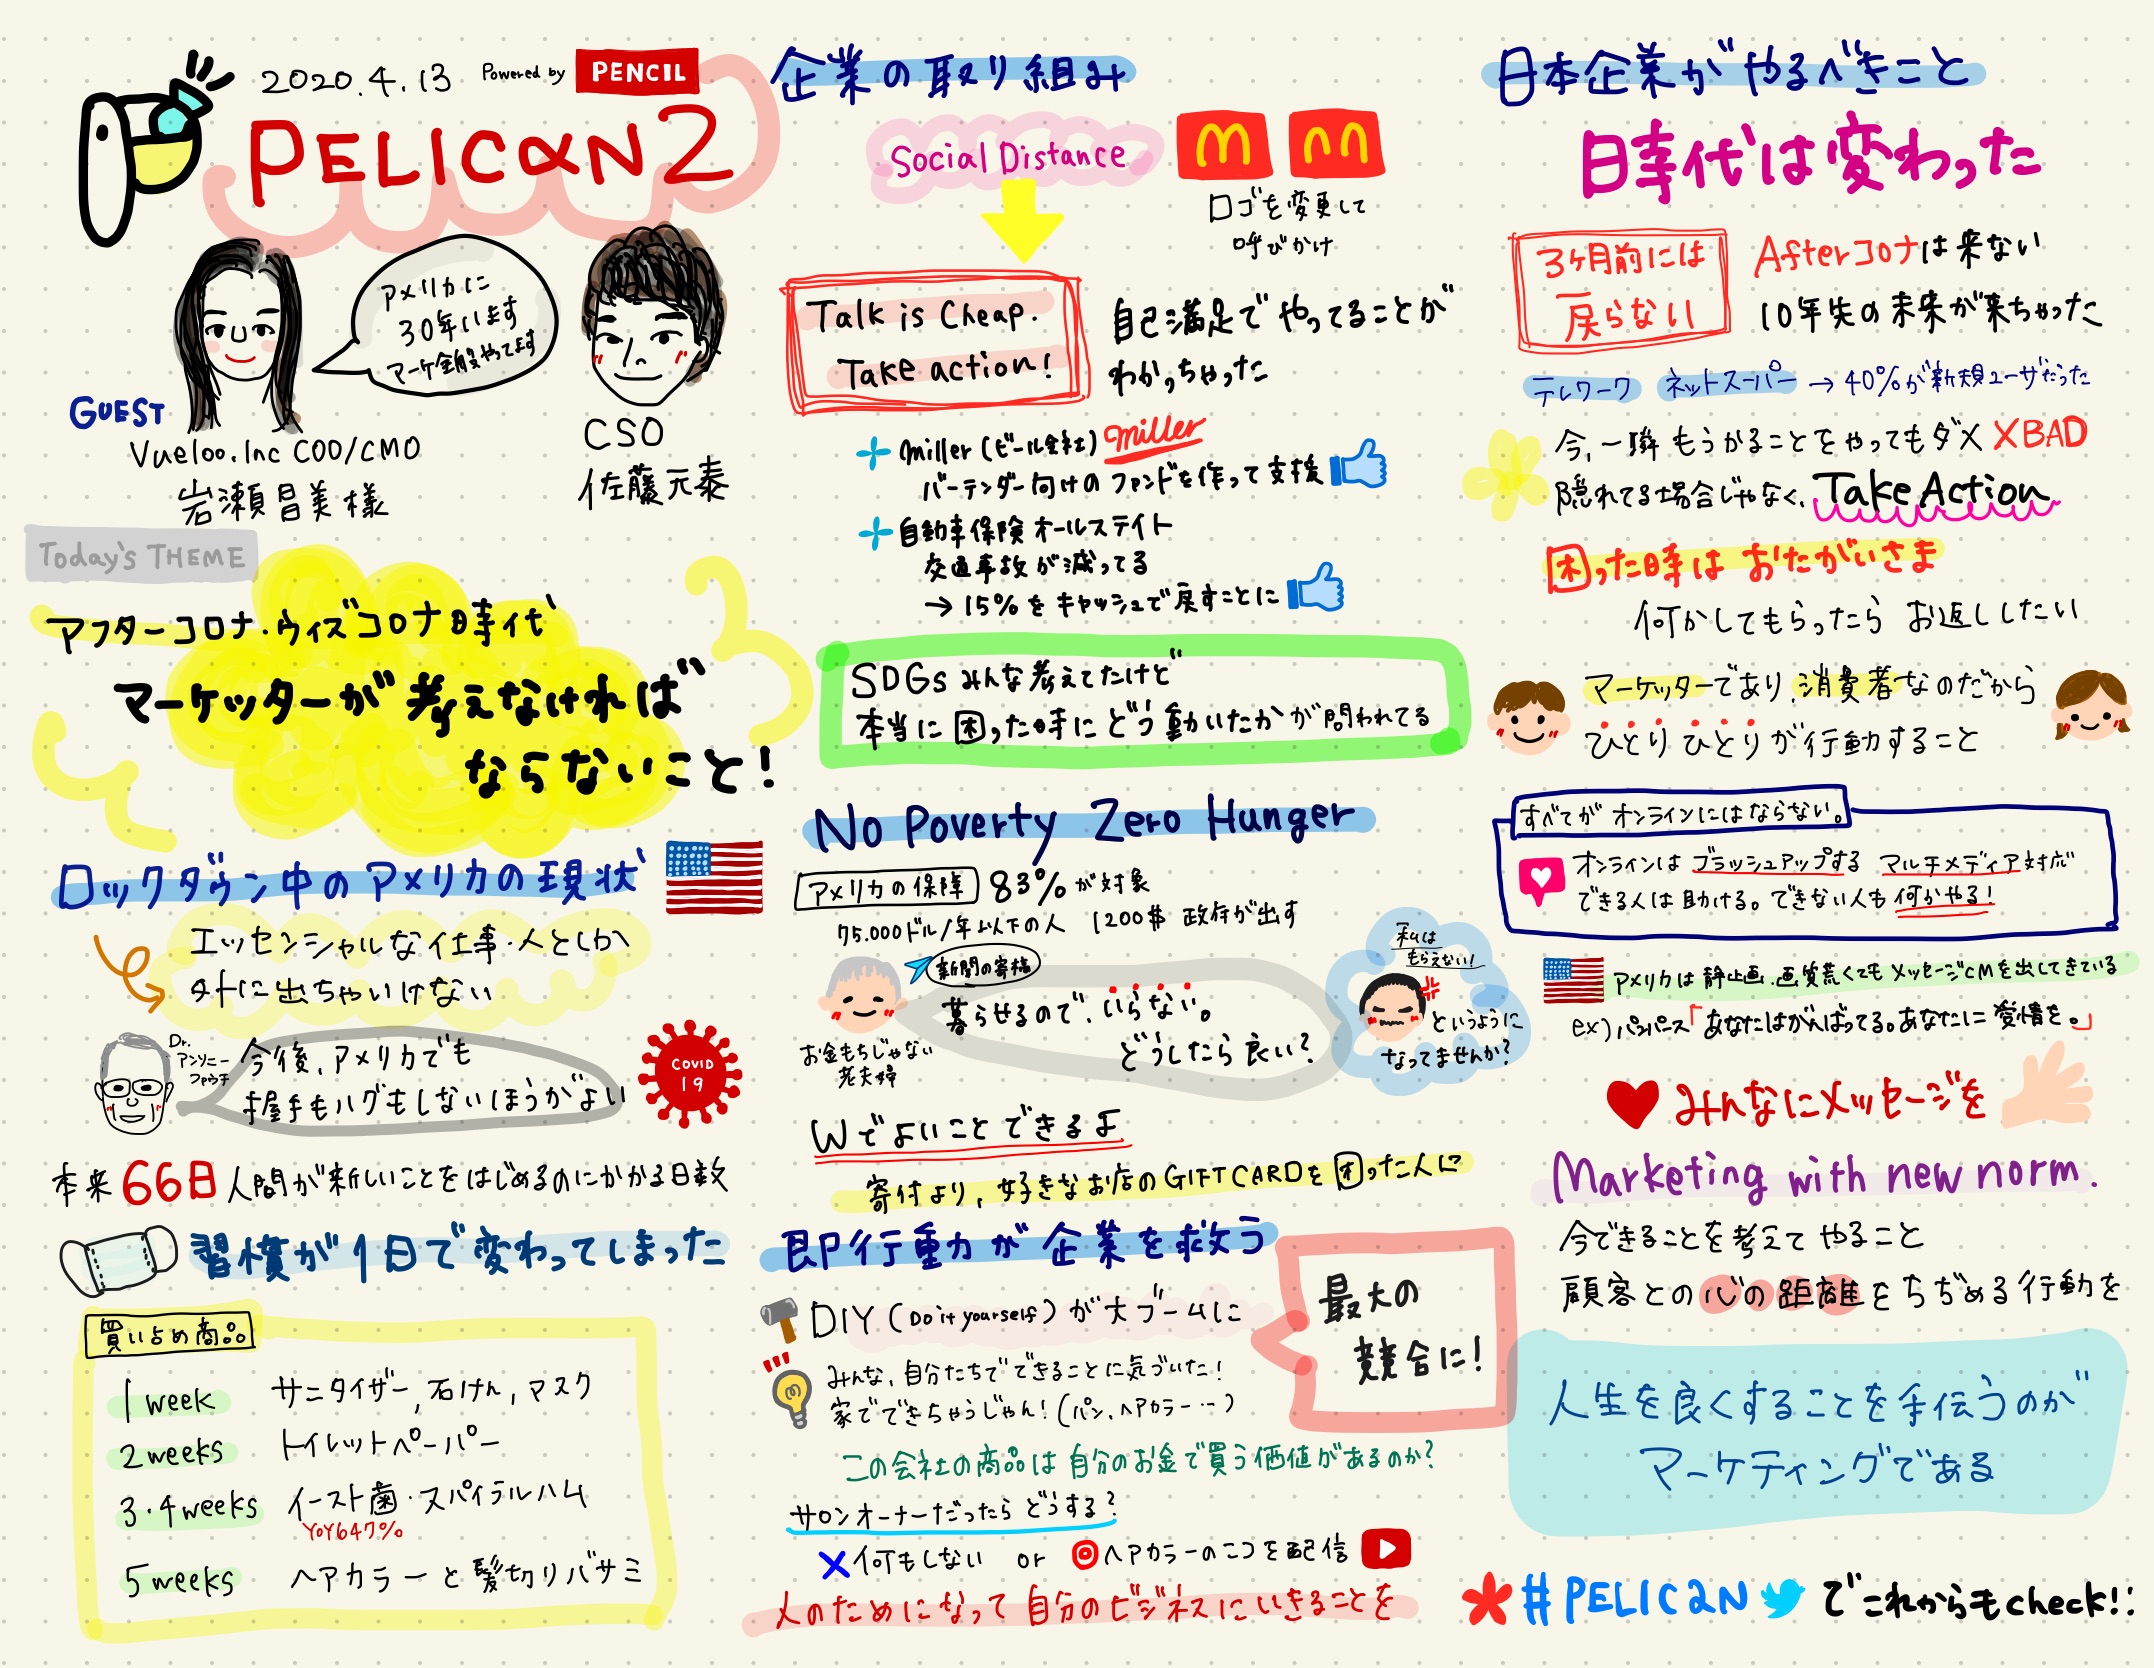 2020.4.13 Powered by PENCIL
PELICAN2
アメリカに
30年います
マーケ全般やってます
GUEST
Vueloo.Inc COO/CMO
岩瀬昌美様
CSO
佐藤元泰
Today's THEME
アフターコロナ・ウィズコロナ時代
マーケッターが考えなければ
ならないこと!
ロックダウン中のアメリカの現状
エッセンシャルな仕事・人としか
外に出ちゃいけない
Dr.
アンソニー
ファウチ
今後、アメリカでも
握手もハグもしないほうがよい
COVID
19
本来66日人間が新しいことをはじめるのにかかる日数
習慣が1日で変わってしまった
買い占め商品
1 week サニタイザー,石けん,マスク
2 weeks トイレットペーパー
3・4 weeks イースト菌・スパイラルハム
YOY647%
5 weeks ヘアカラーと髪切りバサミ
企業の取り組み
Social Distance
ロゴを変更して
呼びかけ
Talk is Cheap.
Take action!
自己満足でやってることが
わかっちゃった
miller(ビール会社) miller
バーテンダー向けのファンドを作って支援
自動車保険オールステイト
交通事故が減ってる
→15%をキャッシュで戻すことに
SDGsみんな考えてたけど
本当に困った時にどう動いたかが問われてる
No Poverty Zero Hunger
アメリカの保障 83%が対象
75.000ドル/年以下の人 1200$ 政府が出す
新聞の寄稿
暮らせるので、いらない。
どうしたら良い?
お金もちじゃない
老夫婦
私は
もらえない!
というように
なってませんか?
Wでよいことできるよ
寄付より、好きなお店のGIFTCARDを困った人に
即行動が企業を救う
DIY(Do it yourself)が大ブームに
最大の
競合に!
みんな、自分たちでできることに気づいた!
家でできちゃうじゃん!(パン、ヘアカラー…)
この会社の商品は自分のお金で買う価値があるのか?
サロンオーナーだったらどうする?
×何もしない or ◎ヘアカラーのコツを配信
人のためになって自分のビジネスにいきることを
日本企業がやるべきこと
時代は変わった
3ヶ月前には
戻らない
Afterコロナは来ない
10年先の未来が来ちゃった
テレワーク ネットスーパー→40%が新規ユーザだった
今,一瞬もうかることをやってもダメ×BAD
隠れてる場合じゃなく、Take Action
困った時はおたがいさま
何かしてもらったらお返ししたい
マーケッターであり、消費者なのだから
ひとりひとりが行動すること
すべてがオンラインにはならない。
オンラインはブラッシュアップする マルチメディア対応
できる人は助ける。できない人も何かやる!
アメリカは静止画・画質荒くてもメッセージCMを出してきている
ex)パンパース「あなたはがんばってる。あなたに愛情を。」
みんなにメッセージを
Marketing with new norm.
今できることを考えてやること
顧客との心の距離をちぢめる行動を
人生を良くすることを手伝うのが
マーケティングである
#PELICAN でこれからもcheck!!